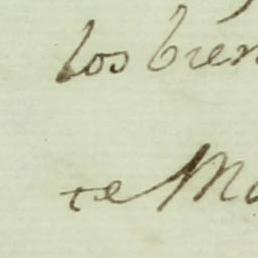 los bien
te Ma